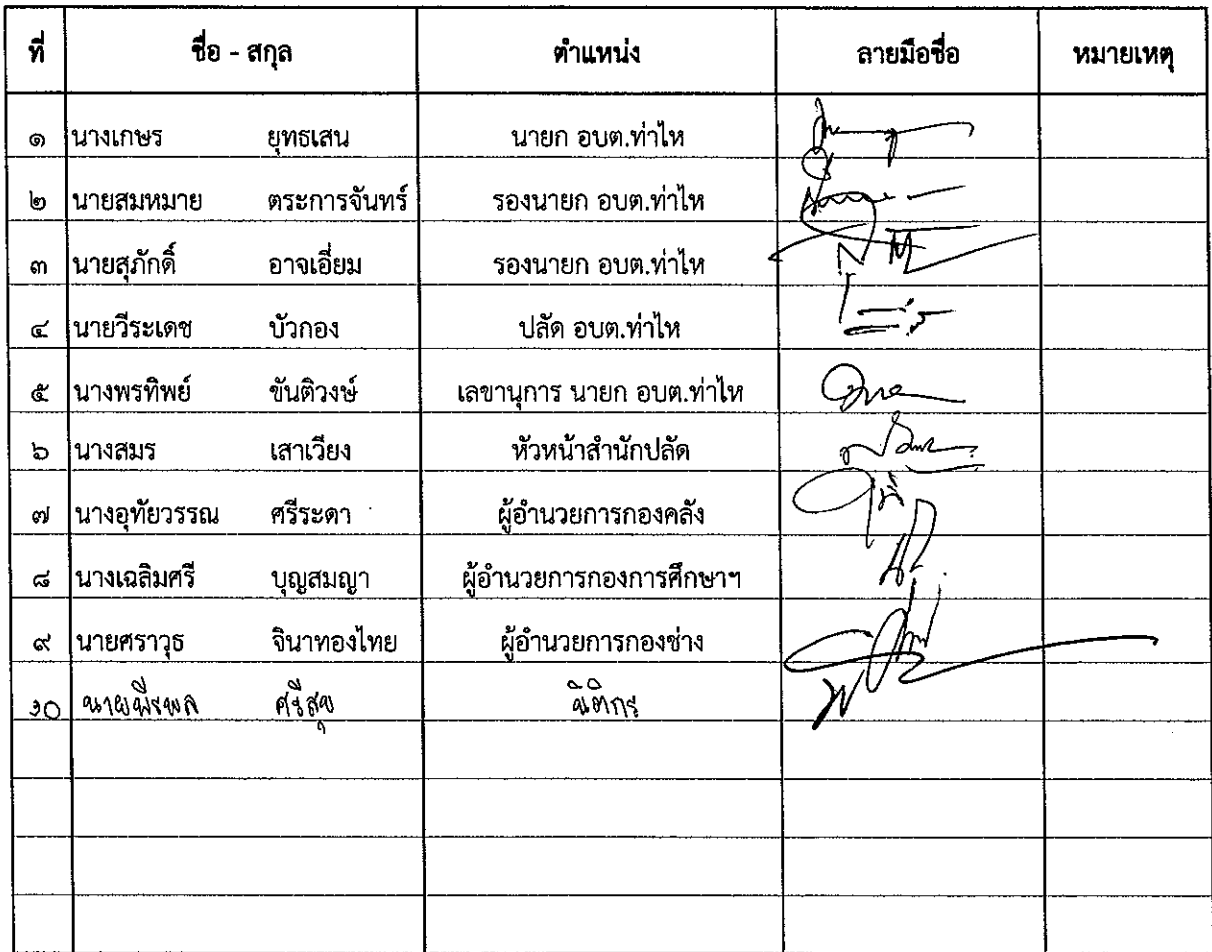 ที่ ชื่อ - สกุล ตำแหน่ง ลายมือชื่อ หมายเหตุ
๑ นางเกษร ยุทธเสน นายก อบต.ท่าไห
๒ นายสมหมาย ตระการจันทร์ รองนายก อบต.ท่าไห
๓ นายสุภักดิ์ อาจเอี่ยม รองนายก อบต.ท่าไห
๔ นายวีระเดช บัวกอง ปลัด อบต.ท่าไห
๕ นางพรทิพย์ ขันติวงษ์ เลขานุการ นายก อบต.ท่าไห
๖ นางสมร เสาเวียง หัวหน้าสำนักปลัด
๗ นางอุทัยวรรณ ศรีระดา ผู้อำนวยการกองคลัง
๘ นางเฉลิมศรี บุญสมญา ผู้อำนวยการกองการศึกษาฯ
๙ นายศราวุธ จินาทองไทย ผู้อำนวยการกองช่าง
๑๐ นายพีรพล ศรีสุข นิติกร